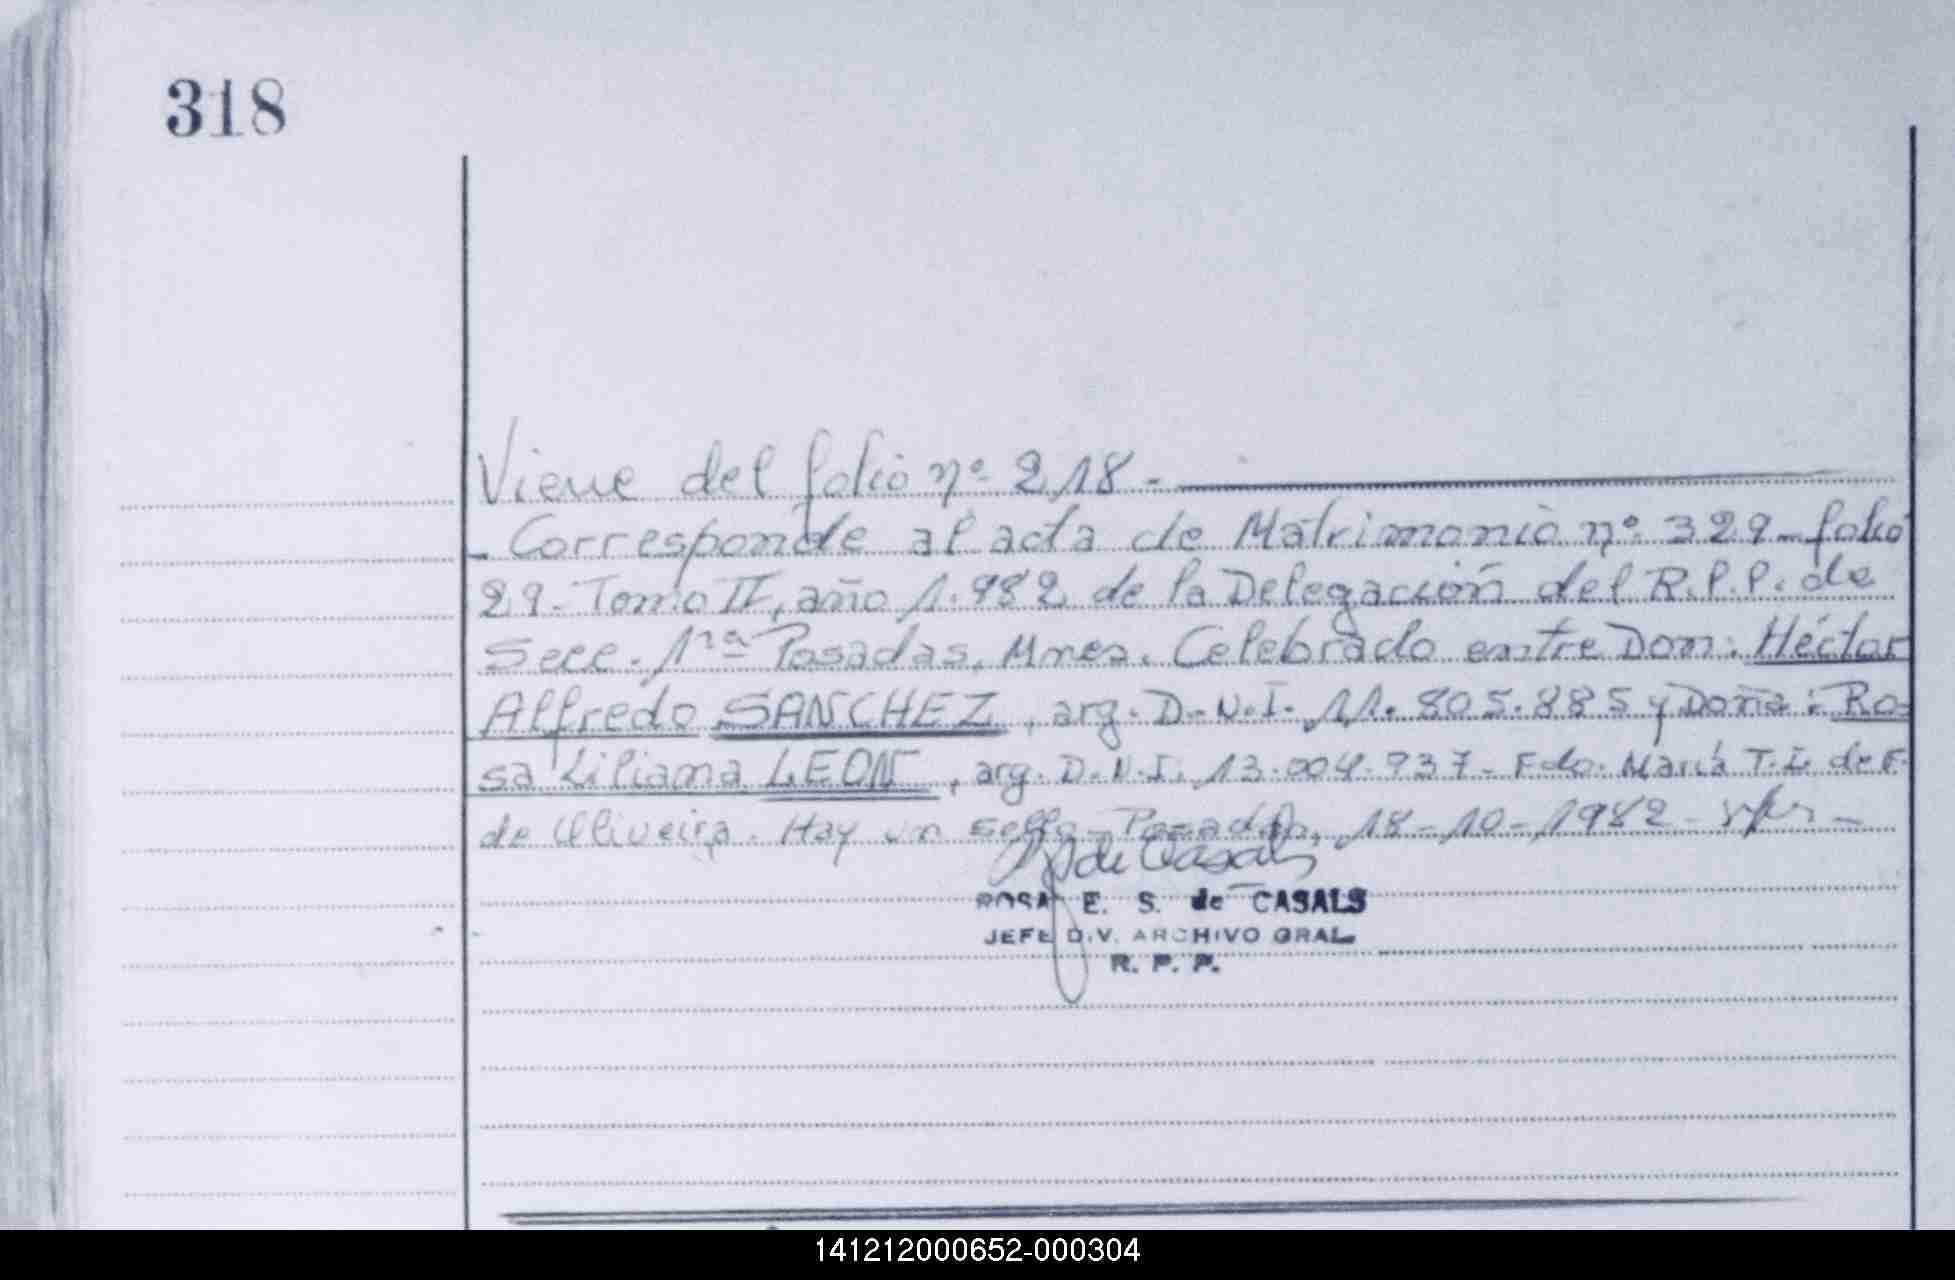 318
Viene del folio nº 218 -
- Corresponde al acta de Matrimonio nº 329 - folio
29 - Tomo II, año 1.982 de la Delegación del R.P.P. de
Secc. 1ra Posadas, Mnes. Celebrado entre Don: Héctor
Alfredo SANCHEZ, arg. D.N.I. 11.805.885 y Doña: Ro-
sa Liliana LEON, arg. D.N.I. 13.004.937 - Fdo. María T. L. de F.
de Oliveira. Hay un sello - Posadas, 18-10-1982 -
de Casals
ROSA E. S. de CASALS
JEFE DIV. ARCHIVO GRAL
R. P. P.
141212000652-000304